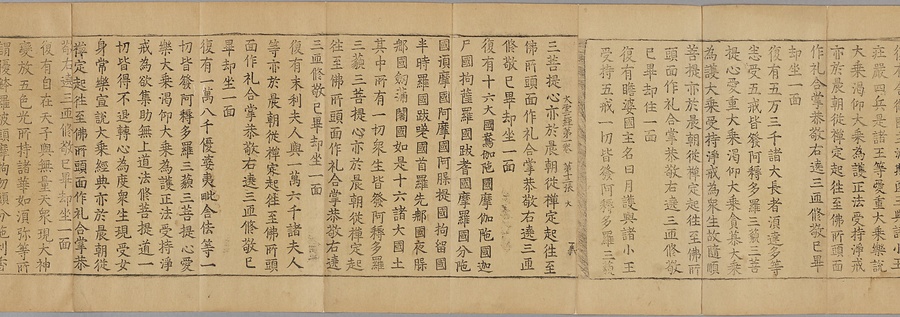 莊嚴四兵是諸王等愛重大乘樂說
大乘渴仰大乘為護正法受持淨戒
亦於晨朝從禪定起往至佛所頭面
作礼合掌恭敬右遶三迊脩敬已畢
却坐一面
復有五万三千諸大長者須達多等
悉受五戒皆發阿耨多羅三藐三菩
提心愛重大乘渴仰大乘貪慕大乘
為護大乘受持淨戒為眾生故隨順
菩提亦於晨朝從禪定起往至佛所
頭面作礼合掌恭敬右遶三迊脩敬
已畢却住一面
復有瞻婆國主名曰月護與諸小王
受持五戒一切皆發阿耨多羅三藐
第七張
三菩提心亦於晨朝從禪定起往至
佛所頭面作礼合掌恭敬右遶三迊
脩敬已畢却坐一面
復有十六大國鴦伽陁國摩伽陁國迦
尸國拘薩羅國跋耆國摩羅國分陁
國須摩國阿摩國阿脾提國拘留國
半時羅國跋蹉國首羅先國夜㬹
國劒浦闍國如是十六諸大國土
其中所有一切眾生皆發阿耨多羅
三藐三菩提心亦於晨朝從禪定起
往至佛所頭面作礼合掌恭敬右遶
三迊脩敬已畢却坐一面
復有末利夫人與一萬六千諸夫人
等亦於晨朝從禪定起往至佛所頭
面作礼合掌恭敬右遶三迊脩敬已
畢却坐一面
復有一萬八千優婆夷毗舍佉等一
切皆發阿耨多羅三藐三菩提心愛
樂大乘渴仰大乘為護正法受持淨
戒為欲集助無上道法脩菩提道一
切皆得不退轉心為度眾生現受女
身常樂宣說大乘經典亦於晨朝從
禪定起往至佛所頭面作礼合掌恭
敬右遶三迊脩敬已畢却坐一面
復有自在天子與無量天眾現大神
變放五色光所持諸華如須弥等所
謂優鉢羅波頭摩拘勿頭分陁利香